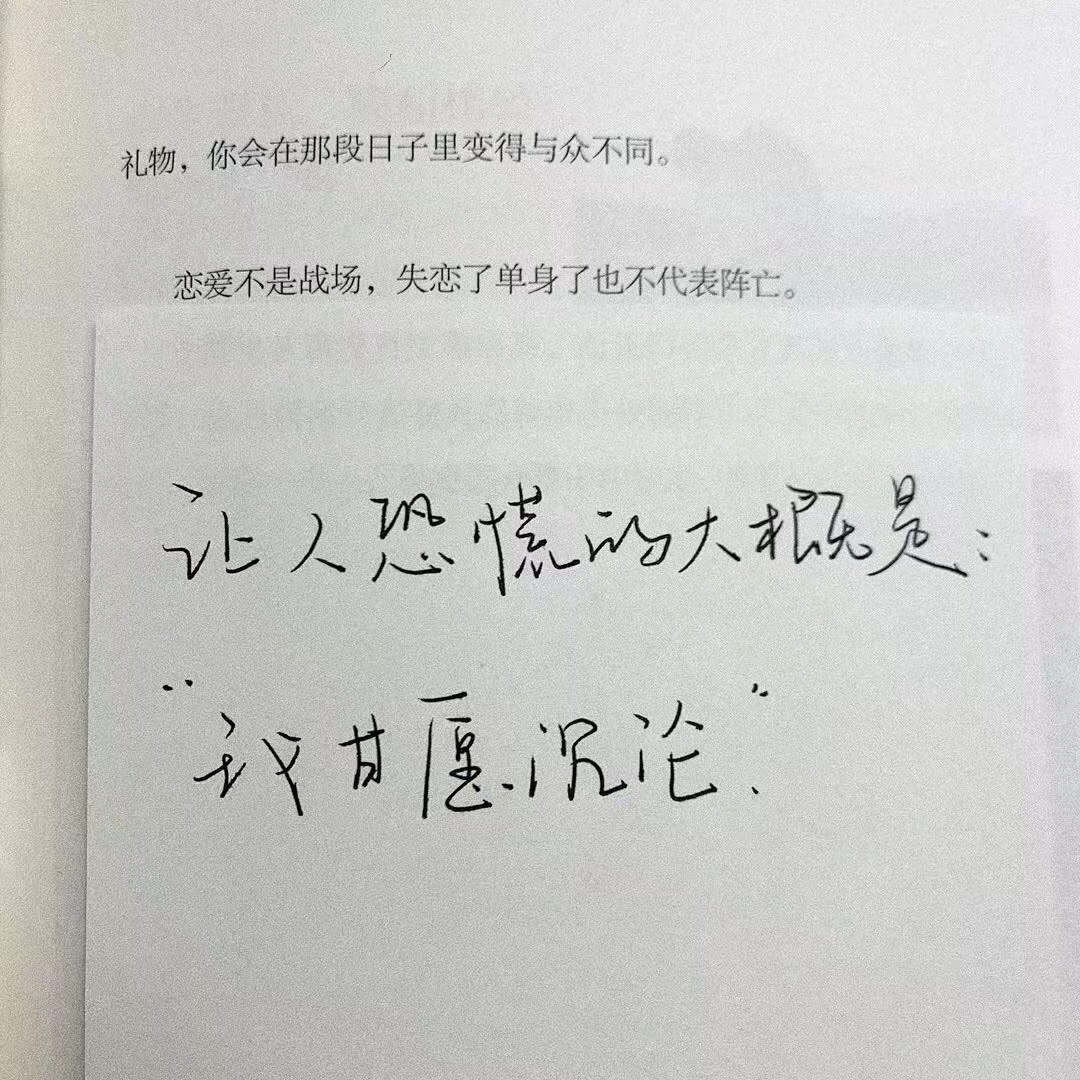 礼物，你会在那段日子里变得与众不同。
恋爱不是战场，失恋了单身了也不代表阵亡。
让人恐慌的大概是：
“我甘愿沉沦”.